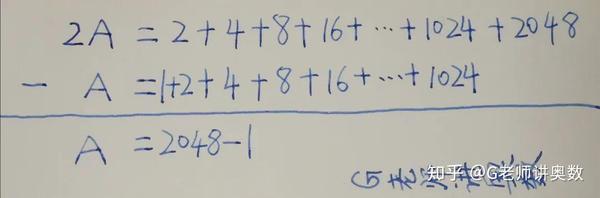 2A = 2+4+8+16+…+1024+2048
- A =1+2+4+8+16+…+1024
A =2048-1
知乎 @G老师讲奥数